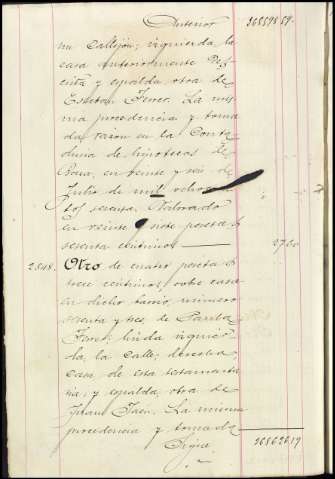 Anterior 3685989 59.
un callejón; izquierda la
casa anteriormente des-
crita y espalda otra de
Esteban Ferrer. La mis-
ma procedencia y toma
da razon en la Conta
duria de hipotecas de
en veinte y seis de
Julio de mil ochocien
tos sesenta. Valorado
en veinte y siete pesetas
sesenta centimos 27 60
2548. Otro de cuatro pesetas
trece centimos, sobre casa
en dicho barrio, numero
sesenta y tres, de
Ferrer; linda izquier-
da, la calle; derecha
casa de esta testamenta
ria; y espalda, otra de
Juan Jaen. La misma
procedencia y tomada
Sigue